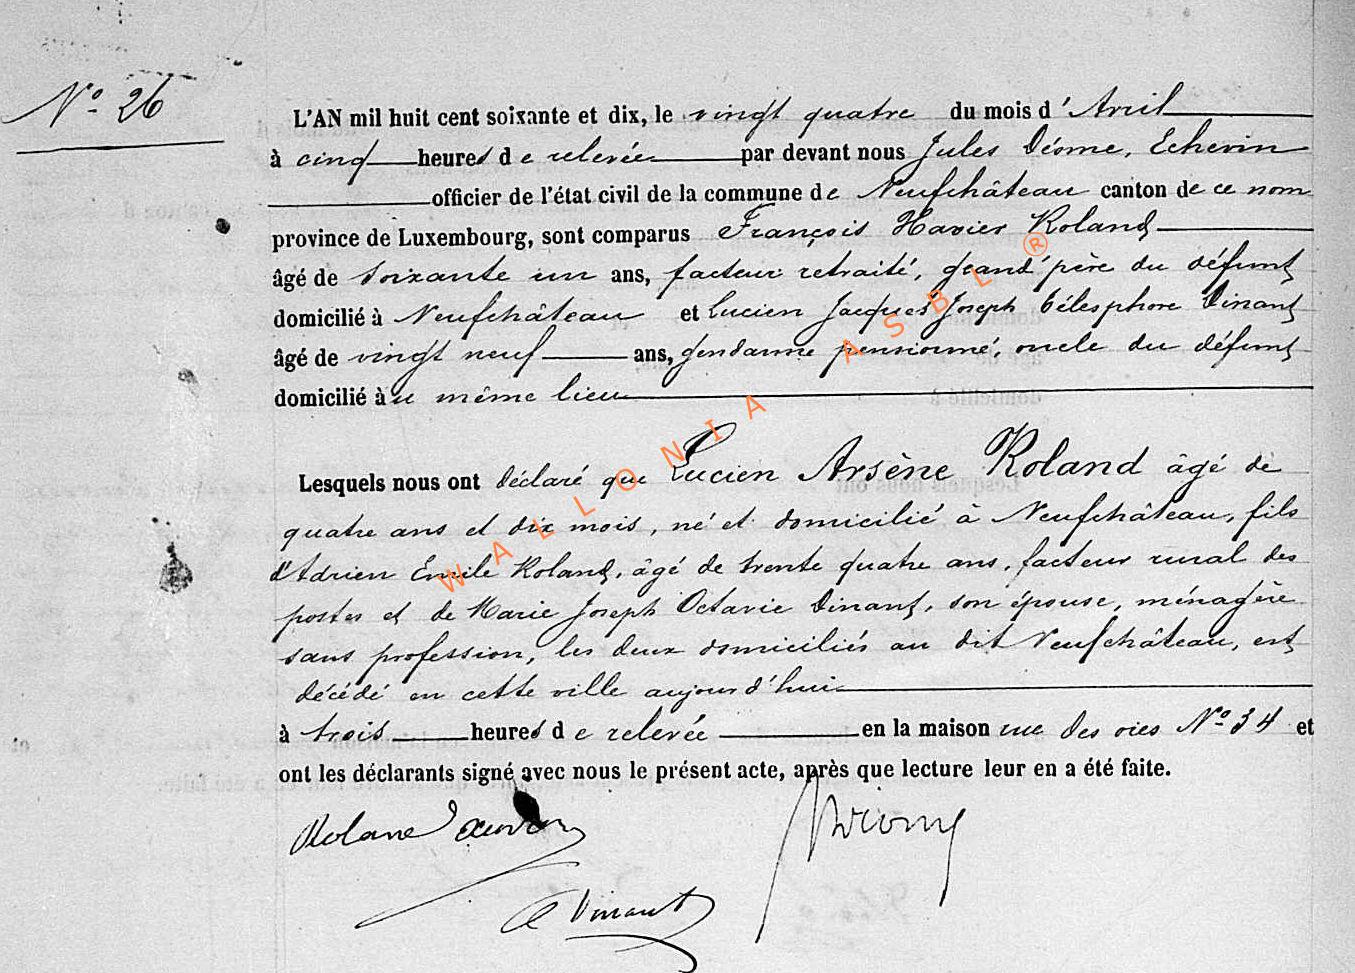 N° 26
L'AN mil huit cent soixante et dix, le vingt quatre du mois d'Avril
à cinq heures de relevée par devant nous Jules Déome, Echevin
officier de l'état civil de la commune de Neufchâteau canton de ce nom
province de Luxembourg, sont comparus François Havier Roland
âgé de soixante un ans, facteur retraité, grand père du défunt
domicilié à Neufchâteau et Lucien Jacques Joseph Télesphore Dinant
âgé de vingt neuf ans, gendarme pensionné, oncle du défunt
domicilié au même lieu
Lesquels nous ont déclaré que Lucien Arsène Roland âgé de
quatre ans et dix mois, né et domicilié à Neufchâteau, fils
d'Adrien Emile Roland, âgé de trente quatre ans, facteur rural des
postes et de Marie Joseph Octavie Dinant, son épouse, ménagère
sans profession, les deux domiciliés au dit Neufchâteau, est
décédé en cette ville aujourd'hui
à trois heures de relevée en la maison rue des oies N° 34 et
ont les déclarants signé avec nous le présent acte, après que lecture leur en a été faite.
Roland
Dinant
WALLONIA ASBL ®